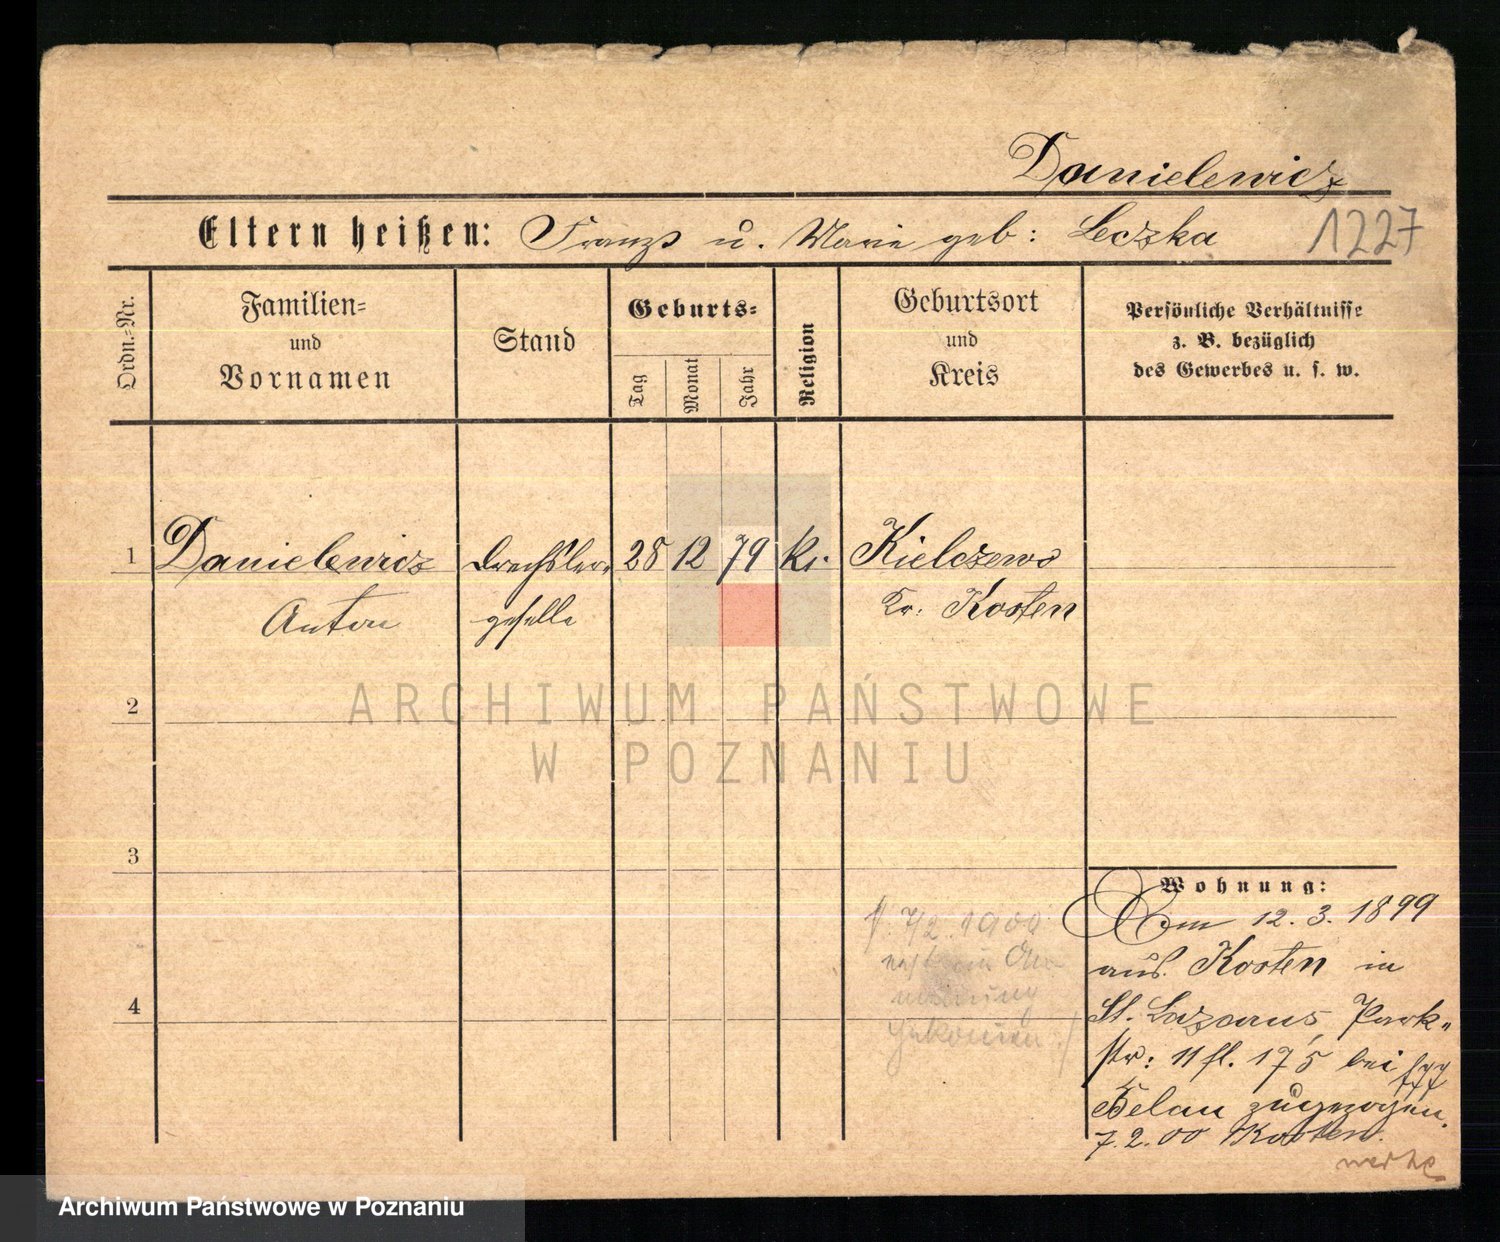 Danielewicz
Eltern heißen: Franz u. Marie geb: Leczka
1227
Ordn.-Nr.
Familien-
und
Vornamen
Stand
Geburts-
Tag
Monat
Jahr
Religion
Geburtsort
und
Kreis
Persönliche Verhältnisse
z. B. bezüglich
des Gewerbes u. s. w.
1 Danielewicz Drechsler- 28 12 79 k. Kielczewo
Anton geselle Kr. Kosten
2
ARCHIWUM PAŃSTWOWE
W POZNANIU
3
Wohnung:
Am 12. 3. 1899
aus Kosten in
St. Lazarus, Park-
str: 11 bei
Belau zugezogen.
7.2.00 Kosten.
7/2. 1900
4
Archiwum Państwowe w Poznaniu